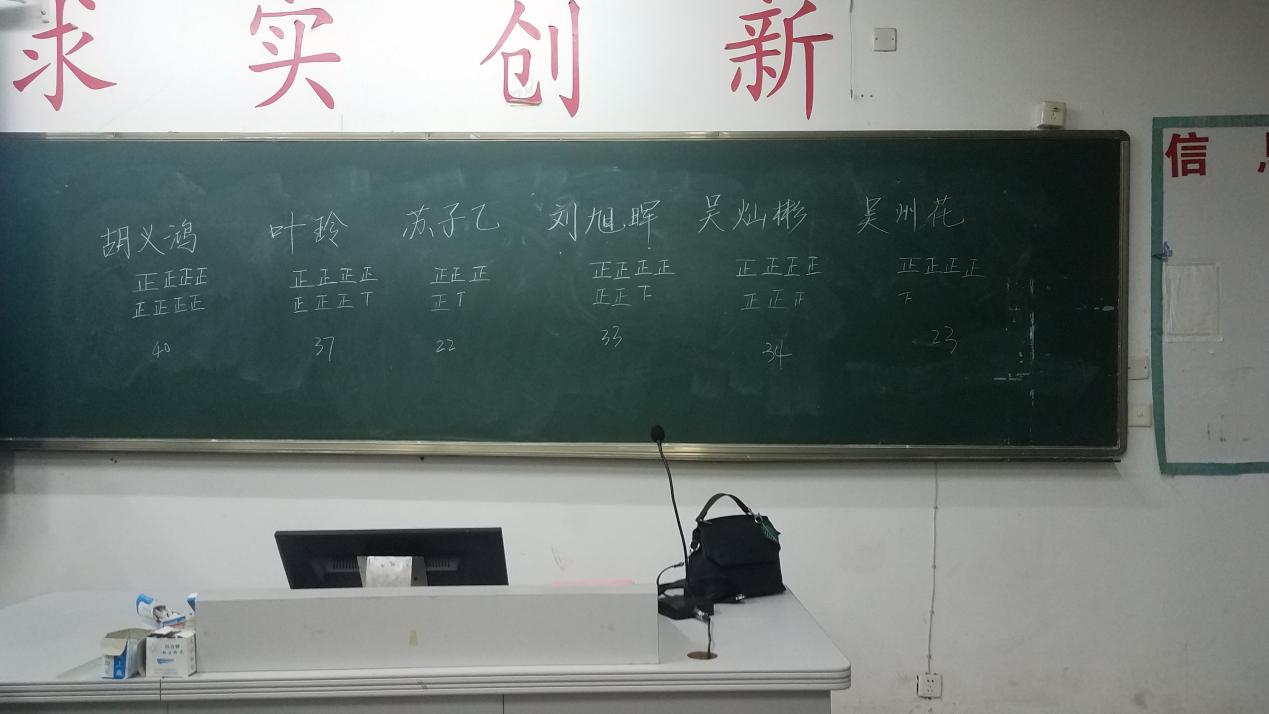 求实创新
信息
胡义鸿 叶玲 苏子乙 刘旭晖 吴灿彬 吴州花
正正正正 正正正正 正正正 正正正正 正正正正 正正正正
正正正正 正正正丅 正丅 正正下 正正正 下
40 37 22 33 34 23